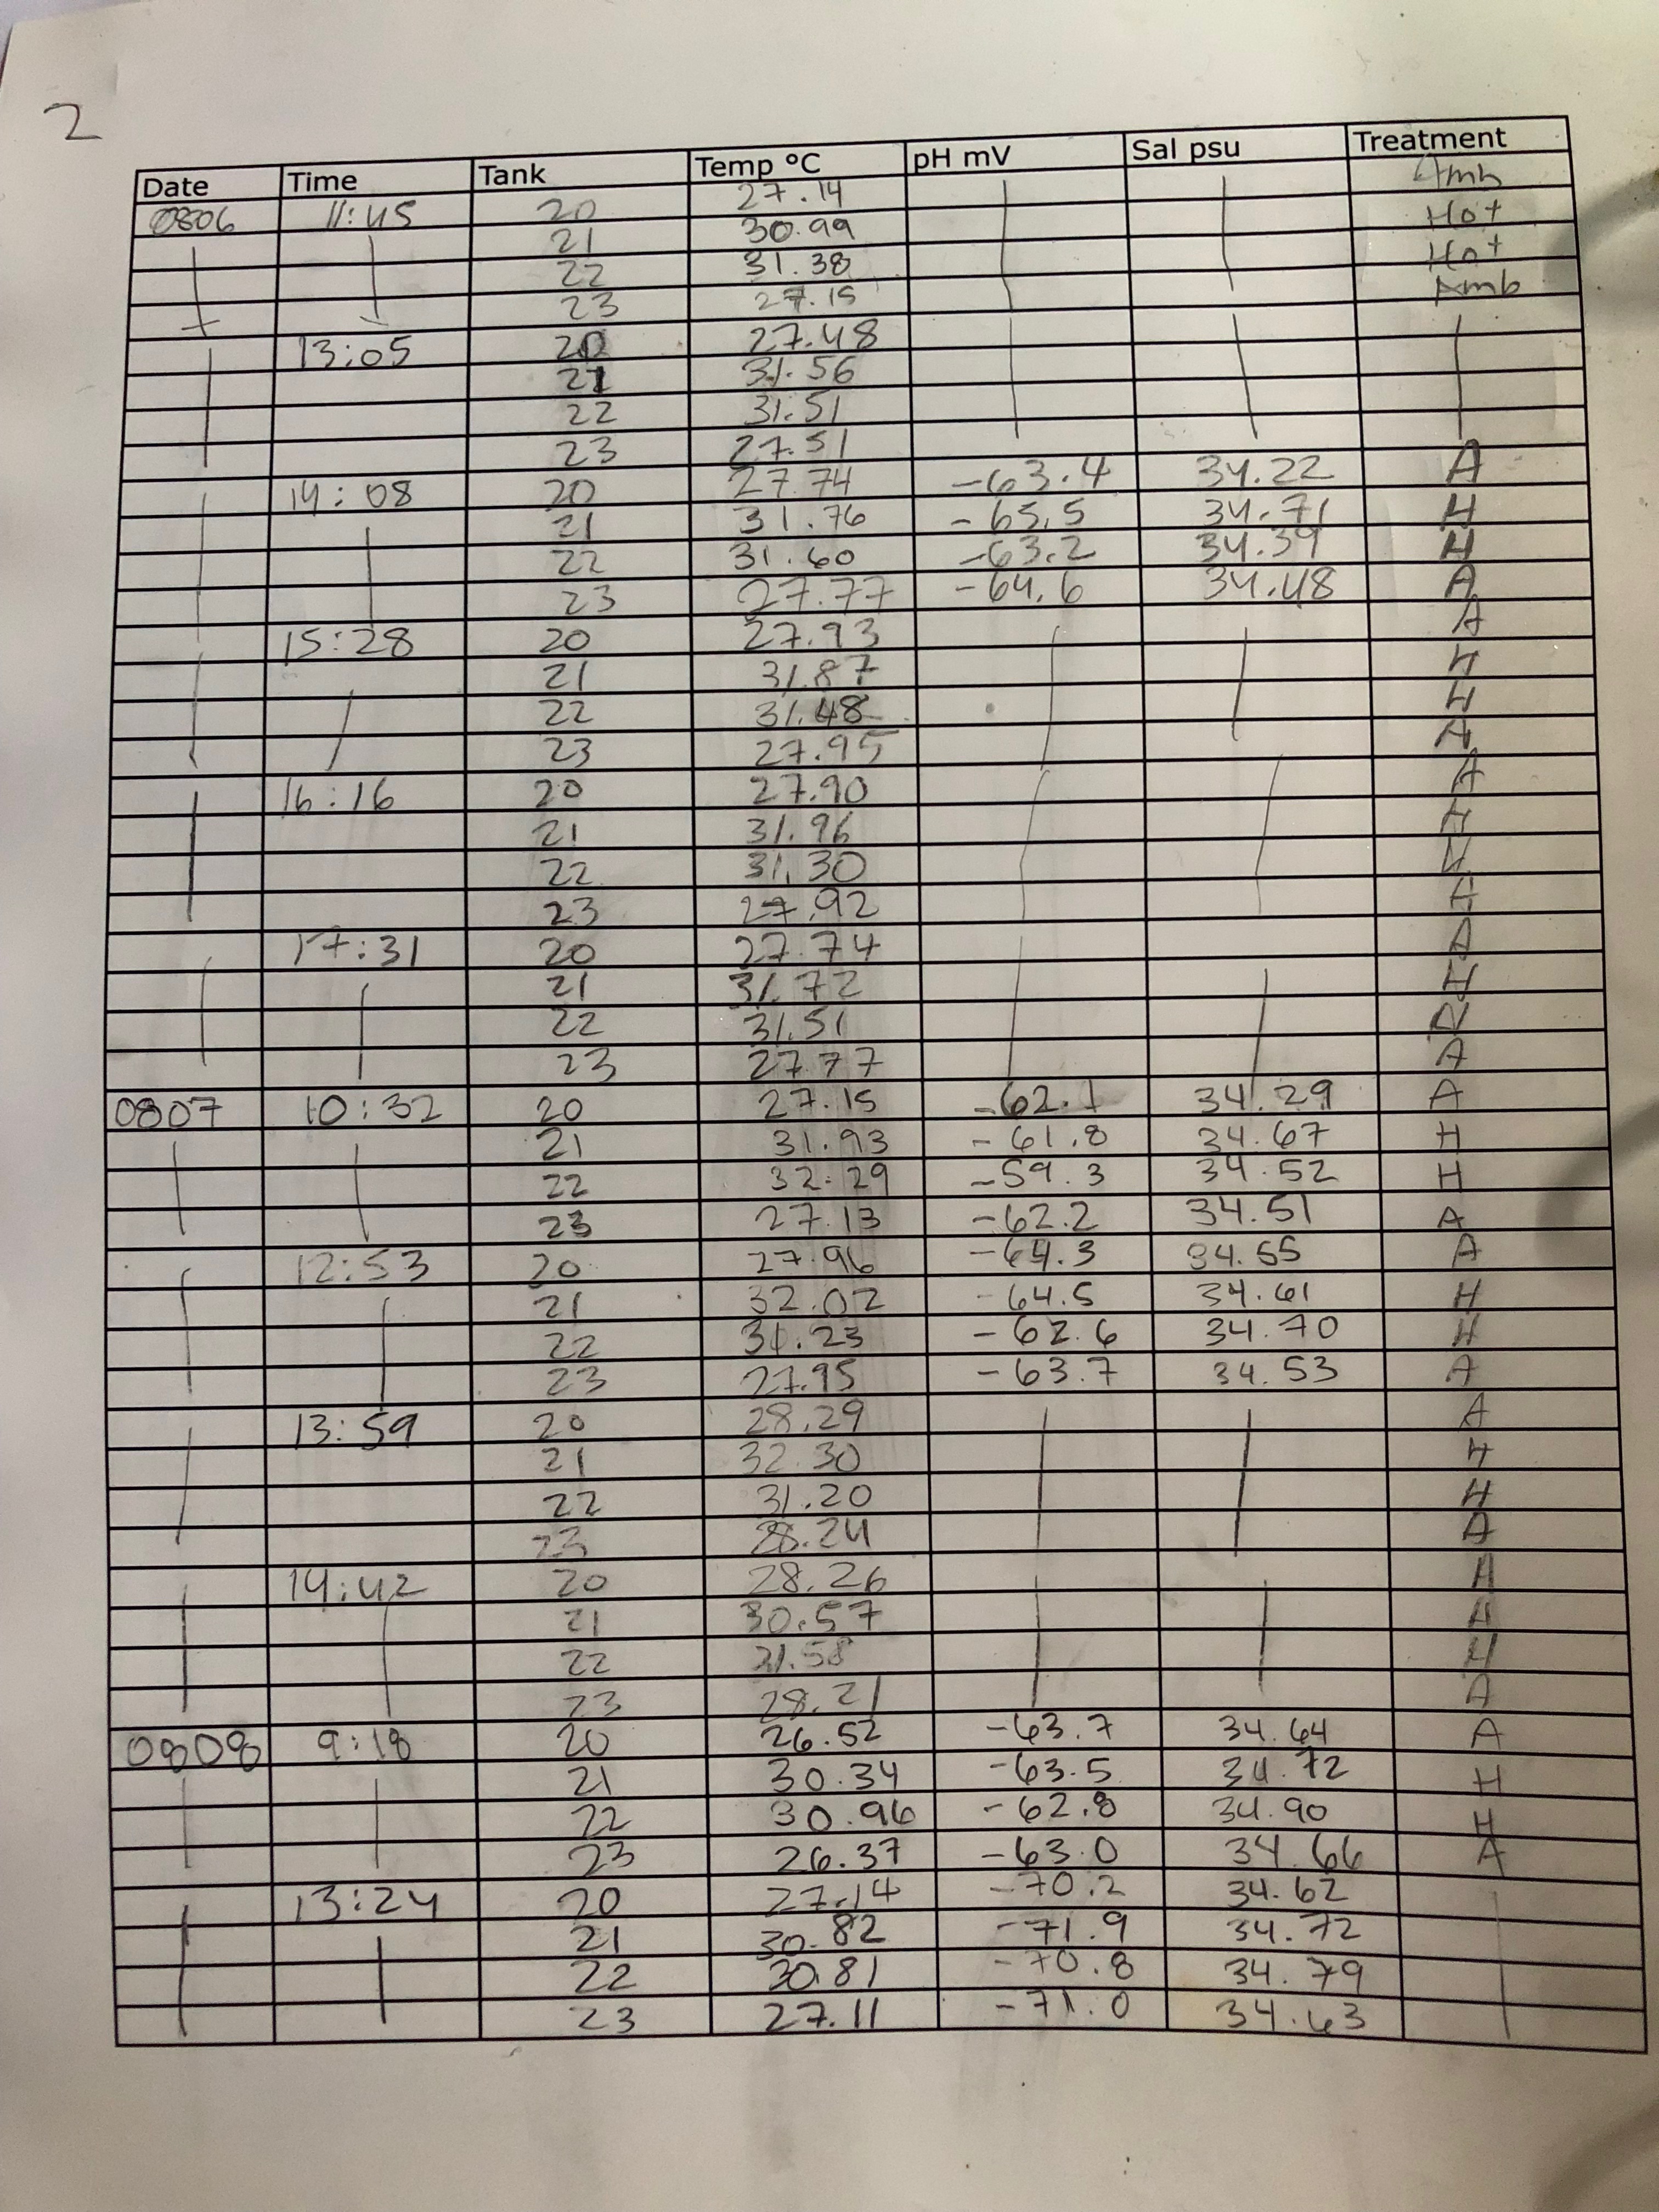 2
Date Time Tank Temp ºC pH mV Sal psu Treatment
0806 11:45 20 27.14 Amb
21 30.99 Hot
22 31.38 Hot
23 27.15 Amb
13:05 20 27.48
21 31.56
22 31.51
23 27.51
14:08 20 27.74 -63.4 34.22 A
21 31.76 -65.5 34.71 H
22 31.60 -63.2 34.39 H
23 27.77 -64.6 34.48 A
15:28 20 27.93 A
21 31.87 H
22 31.48 H
23 27.95 A
16:16 20 27.90 A
21 31.96 H
22 31.30 H
23 27.92 A
17:31 20 27.74 A
21 31.72 H
22 31.51
23 27.77 A
0807 10:32 20 27.15 -62.1 34.29 A
21 31.93 -61.8 34.67 H
22 32.29 -59.3 34.52 H
23 27.13 -62.2 34.51 A
12:53 20 27.96 -64.3 34.55 A
21 32.02 -64.5 34.61 H
22 31.23 -62.6 34.70 H
23 27.95 -63.7 34.53 A
13:59 20 28.29 A
21 32.30 H
22 31.20 H
23 28.24 A
14:42 20 28.26 A
21 30.57 H
22 31.58 H
23 28.21 A
0808 9:18 20 26.52 -63.7 34.64 A
21 30.34 -63.5 34.72 H
22 30.96 -62.8 34.90 H
23 26.37 -63.0 34.66 A
13:24 20 27.14 -70.2 34.62
21 30.82 -71.9 34.72
22 30.81 -70.8 34.79
23 27.11 -71.0 34.63